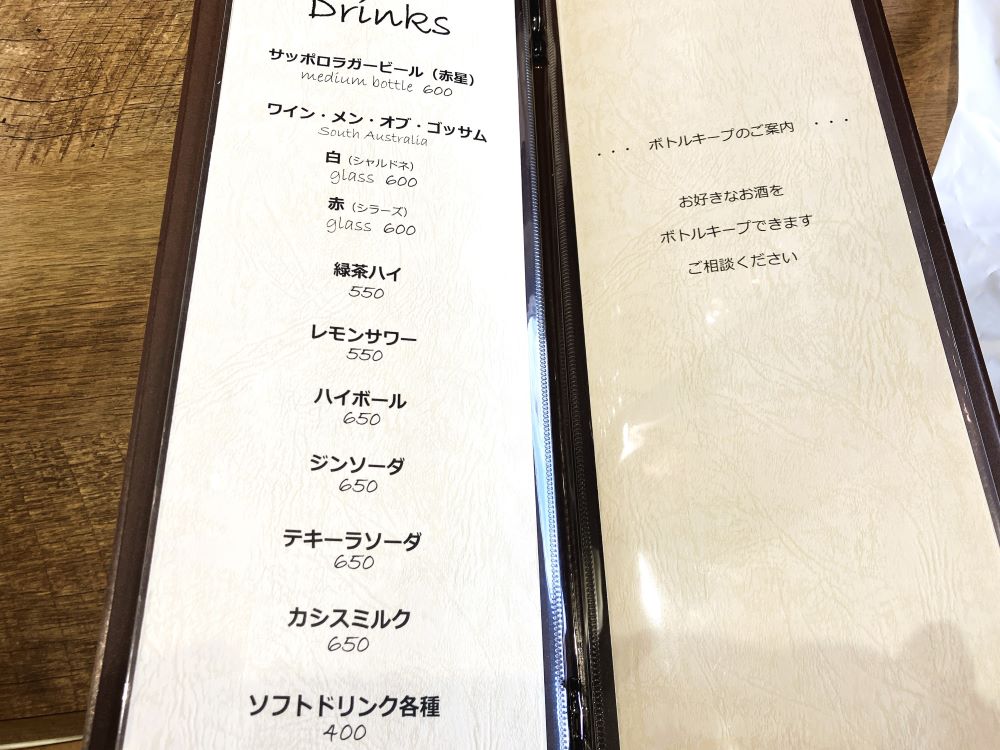 Drinks
サッポロラガービール（赤星）
medium bottle 600
ワイン・メン・オブ・ゴッサム
South Australia
白（シャルドネ）
glass 600
赤（シラーズ）
glass 600
緑茶ハイ
550
レモンサワー
550
ハイボール
650
ジンソーダ
650
テキーラソーダ
650
カシスミルク
650
ソフトドリンク各種
400
・・・ ボトルキープのご案内 ・・・
お好きなお酒を
ボトルキープできます
ご相談ください